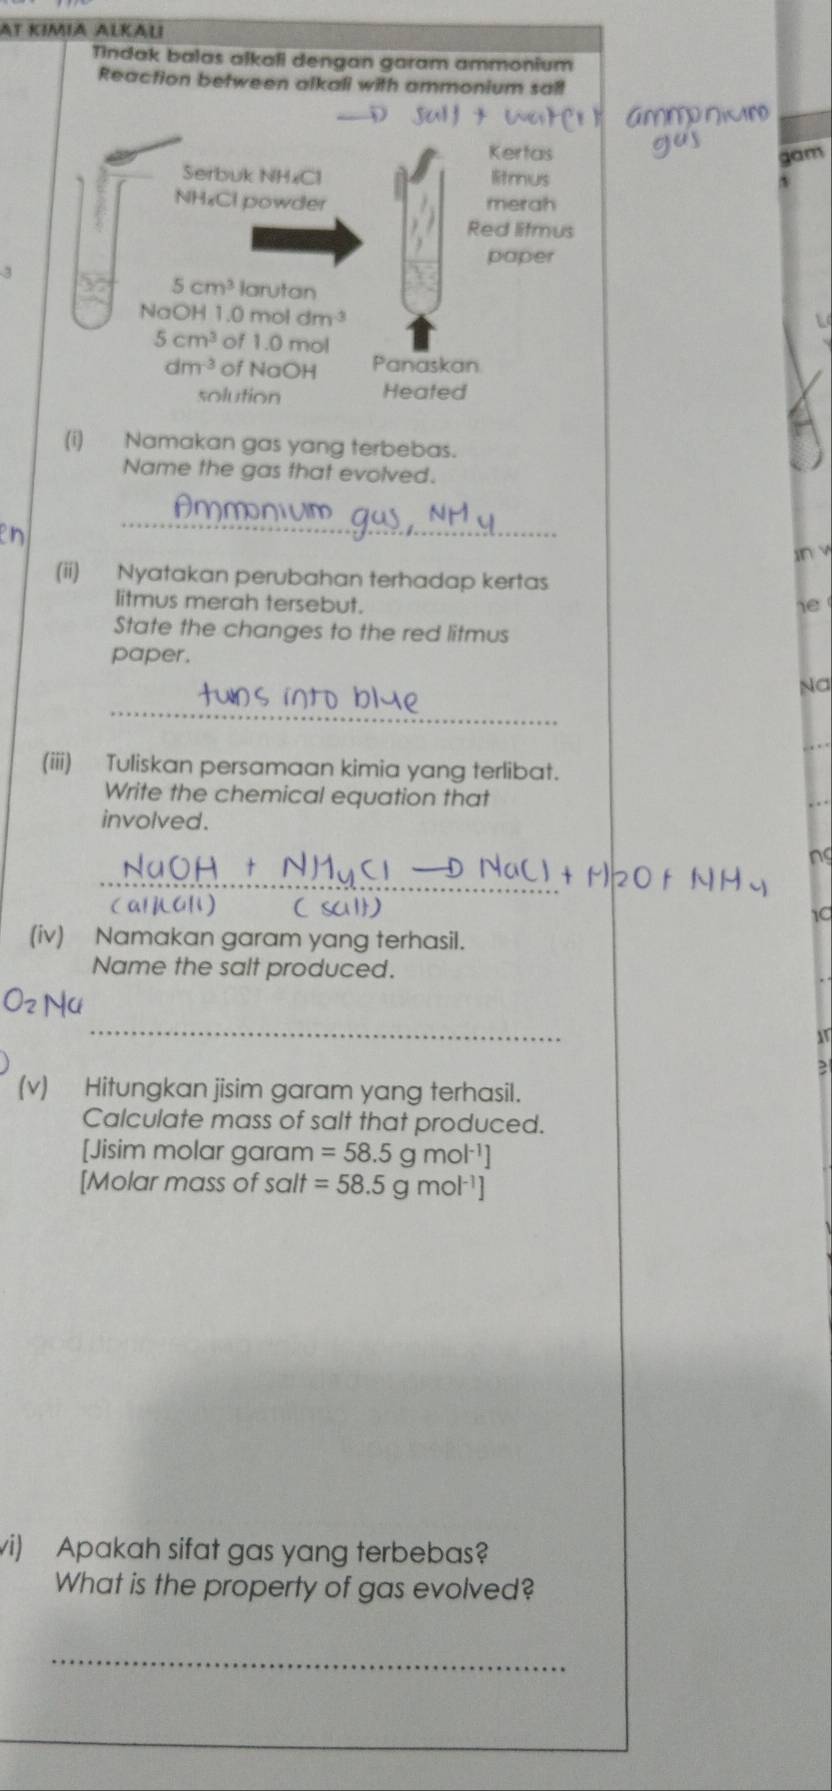 AT KIMIA ALKALI
Tindak balas alkali dengan garam ammonium
Reaction between alkali with ammonium salt
→ salt + water + ammonium gas
Serbuk NH₄Cl
NH₄Cl powder
Kertas
litmus
merah
Red litmus
paper
5 cm³ larutan
NaOH 1.0 mol dm⁻³
5 cm³ of 1.0 mol
dm⁻³ of NaOH
solution
Panaskan
Heated
(i) Namakan gas yang terbebas.
Name the gas that evolved.
Ammonium gas, NH4
(ii) Nyatakan perubahan terhadap kertas
litmus merah tersebut.
State the changes to the red litmus
paper.
tuns into blue
(iii) Tuliskan persamaan kimia yang terlibat.
Write the chemical equation that
involved.
NaOH + NH4Cl → NaCl + H2O + NH4
(alkali) (salt)
(iv) Namakan garam yang terhasil.
Name the salt produced.
O2 Na
(v) Hitungkan jisim garam yang terhasil.
Calculate mass of salt that produced.
[Jisim molar garam = 58.5 g mol⁻¹]
[Molar mass of salt = 58.5 g mol⁻¹]
vi) Apakah sifat gas yang terbebas?
What is the property of gas evolved?
gam
en
Na